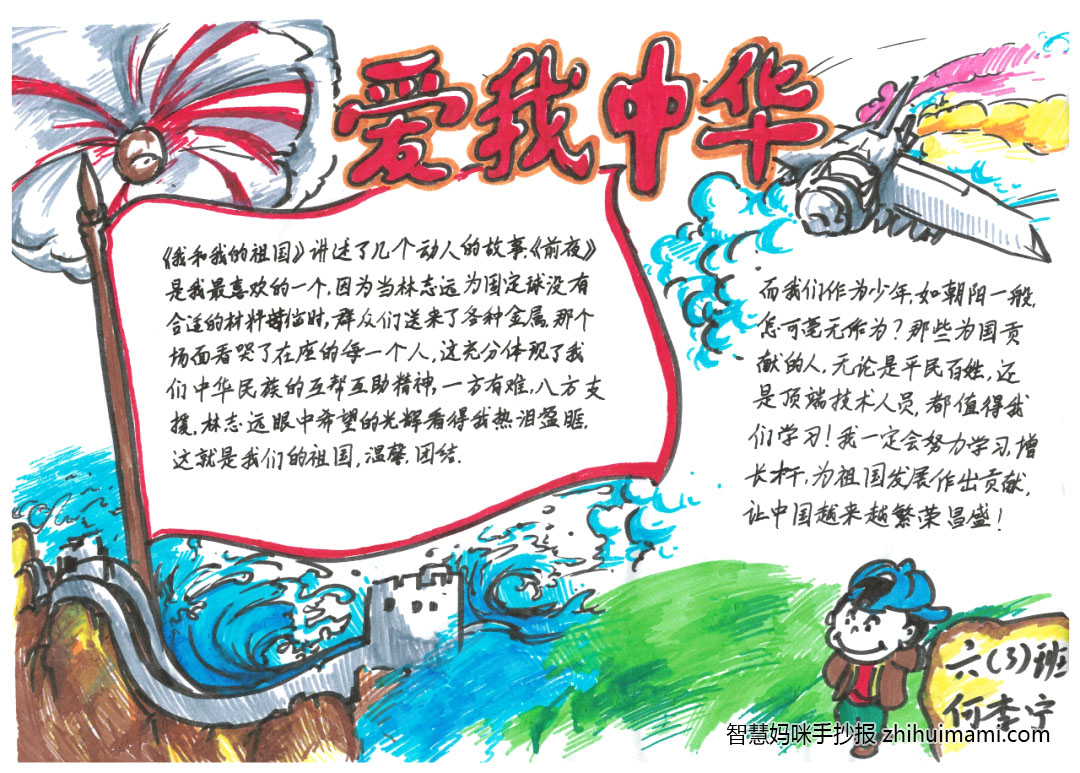 爱我中华
《我和我的祖国》讲述了几个动人的故事.《前夜》
是我最喜欢的一个,因为当林志远为国定球没有
合适的材料替临时,群众们送来了各种金属,那个
场面看哭了在座的每一个人,这充分体现了我
们中华民族的互帮互助精神,一方有难,八方支
援,林志远眼中希望的光辉看得我热泪盈眶,
这就是我们的祖国,温馨,团结.
而我们作为少年,如朝阳一般,
怎可毫无作为?那些为国贡
献的人,无论是平民百姓,还
是顶端技术人员,都值得我
们学习!我一定会努力学习,增
长才干,为祖国发展作出贡献,
让中国越来越繁荣昌盛!
六(3)班
何李宁
智慧妈咪手抄报 zhihuimami.com